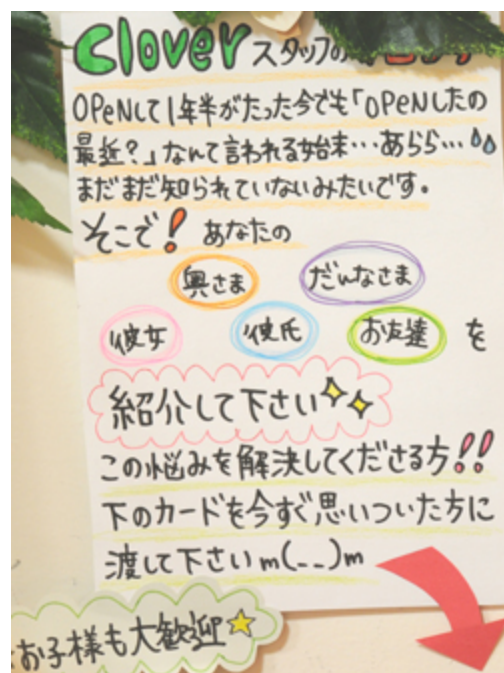 Clover スタッフの
OPeNして1年半がたった今でも「OPeNしたの
最近?」なんて言われる始末…あらら…
まだまだ知られていないみたいです。
そこで! あなたの
奥さま だんなさま
彼女 彼氏 お友達 を
紹介して下さい
この悩みを解決してくださる方!!
下のカードを今すぐ思いついた方に
渡して下さいm(--)m
お子様も大歓迎